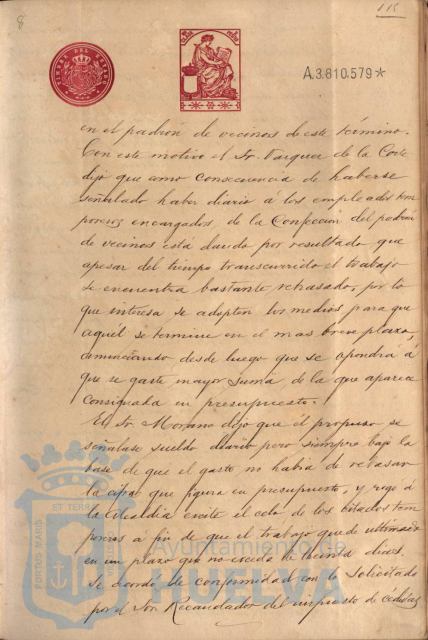 8
115
TIMBRE DEL ESTADO
A.3.810.579*
en el padrón de vecinos de este término.
Con este motivo el Sr. Vazquez de la Corte
dijo que como consecuencia de haberse
señalado haber diario á los empleados tem
poreros encargados de la Confección del padrón
de vecinos está dando por resultado que
apesar del tiempo transcurrido el trabajo
se encuentra bastante retrasado, por lo
que interesa se adopten los medios para que
aquél se termine en el mas breve plazo,
denunciando desde luego que se opondrá á
que se gaste mayor suma de la que aparece
consignada en presupuesto.
El Sr. Morano dijo que él propuso se
señalase sueldo diario pero siempre bajo la
base de que el gasto no habia de rebasar
la cifra que figura en presupuesto, y rogó á
la Alcaldia excite el celo de los citados tem
poreros a fin de que el trabajo quede ultimado
en un plazo que no esceda de treinta dias.
Se acordó de conformidad con lo solicitado
por el Recaudador del impuesto de cédulas
PORTUS MARIS ET TERRAE
Ayuntamiento de
HUELVA